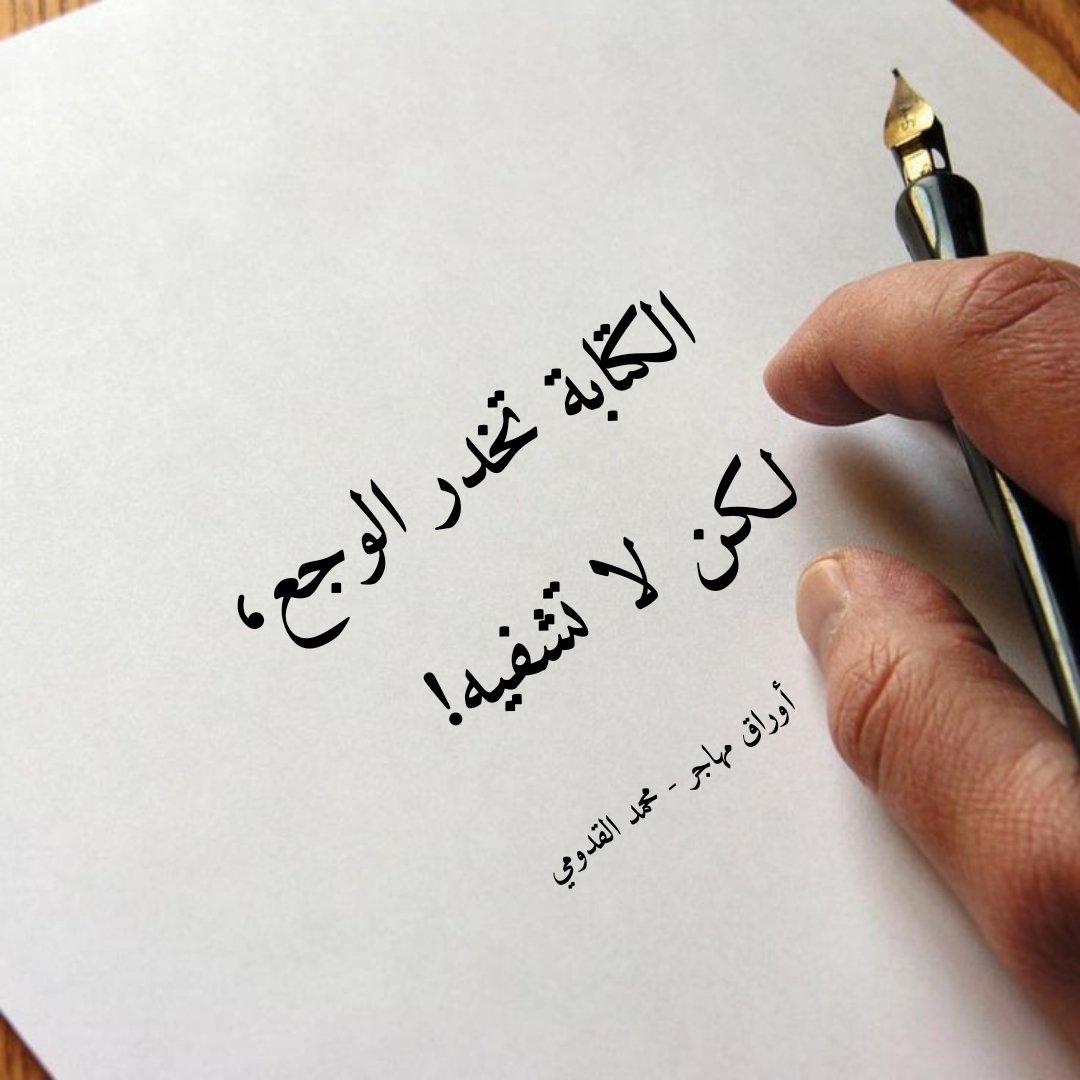 الكتابة تخدر الوجع،
لكن لا تشفيه!
أوراق مهاجر - محمد القدومي